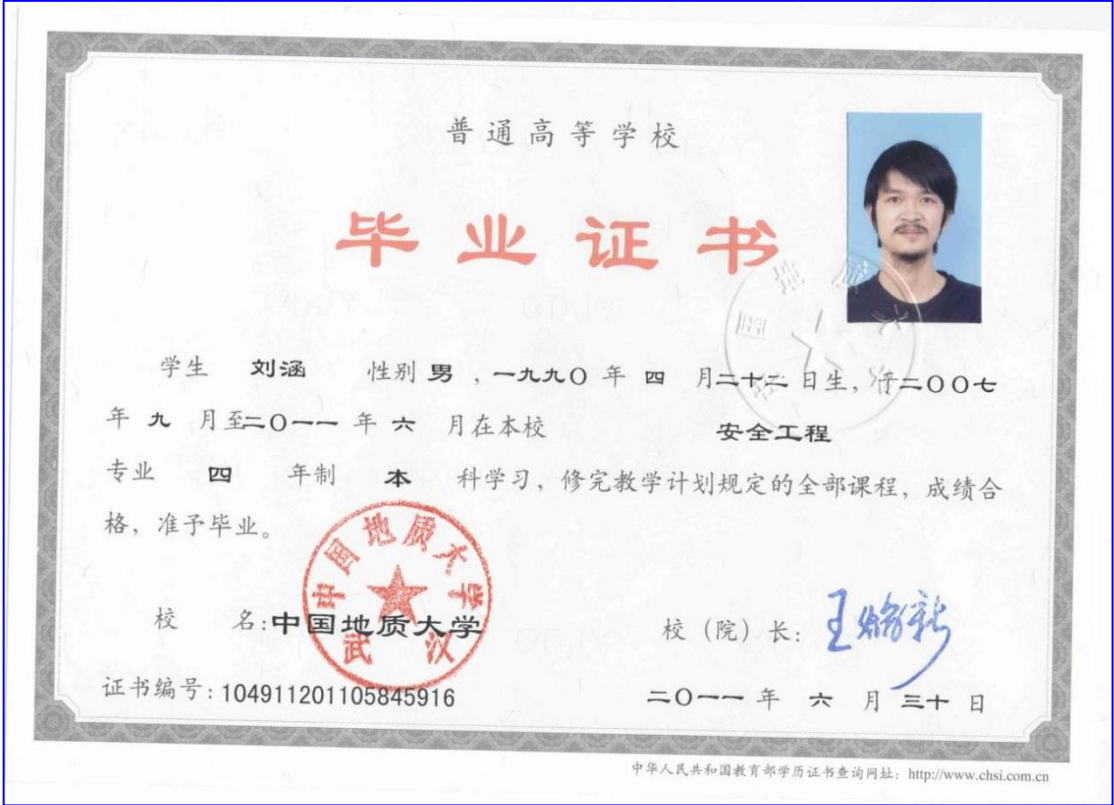 普通高等学校
毕业证书
学生 刘涵 性别 男 ，一九九〇 年 四 月二十二 日生，于二〇〇七
年 九 月至二〇一一 年 六 月在本校 安全工程
专业 四 年制 本 科学习，修完教学计划规定的全部课程，成绩合
格，准予毕业。
中国地质大学
武汉
校 名:中国地质大学 校（院）长:
证书编号:104911201105845916 二〇一一 年 六 月 三十 日
中华人民共和国教育部学历证书查询网址: http://www.chsi.com.cn